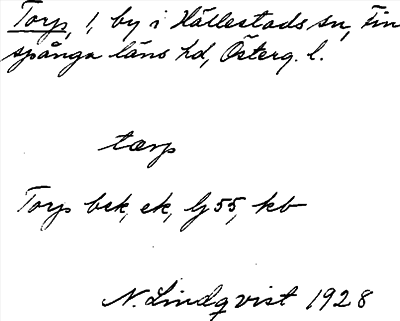 Torp, 1, by i Hällestads sn, Fin
spånga läns hd, Österg. l.
tærp
Torp bek, ek, lj 55, kb
N. Lindqvist 1928